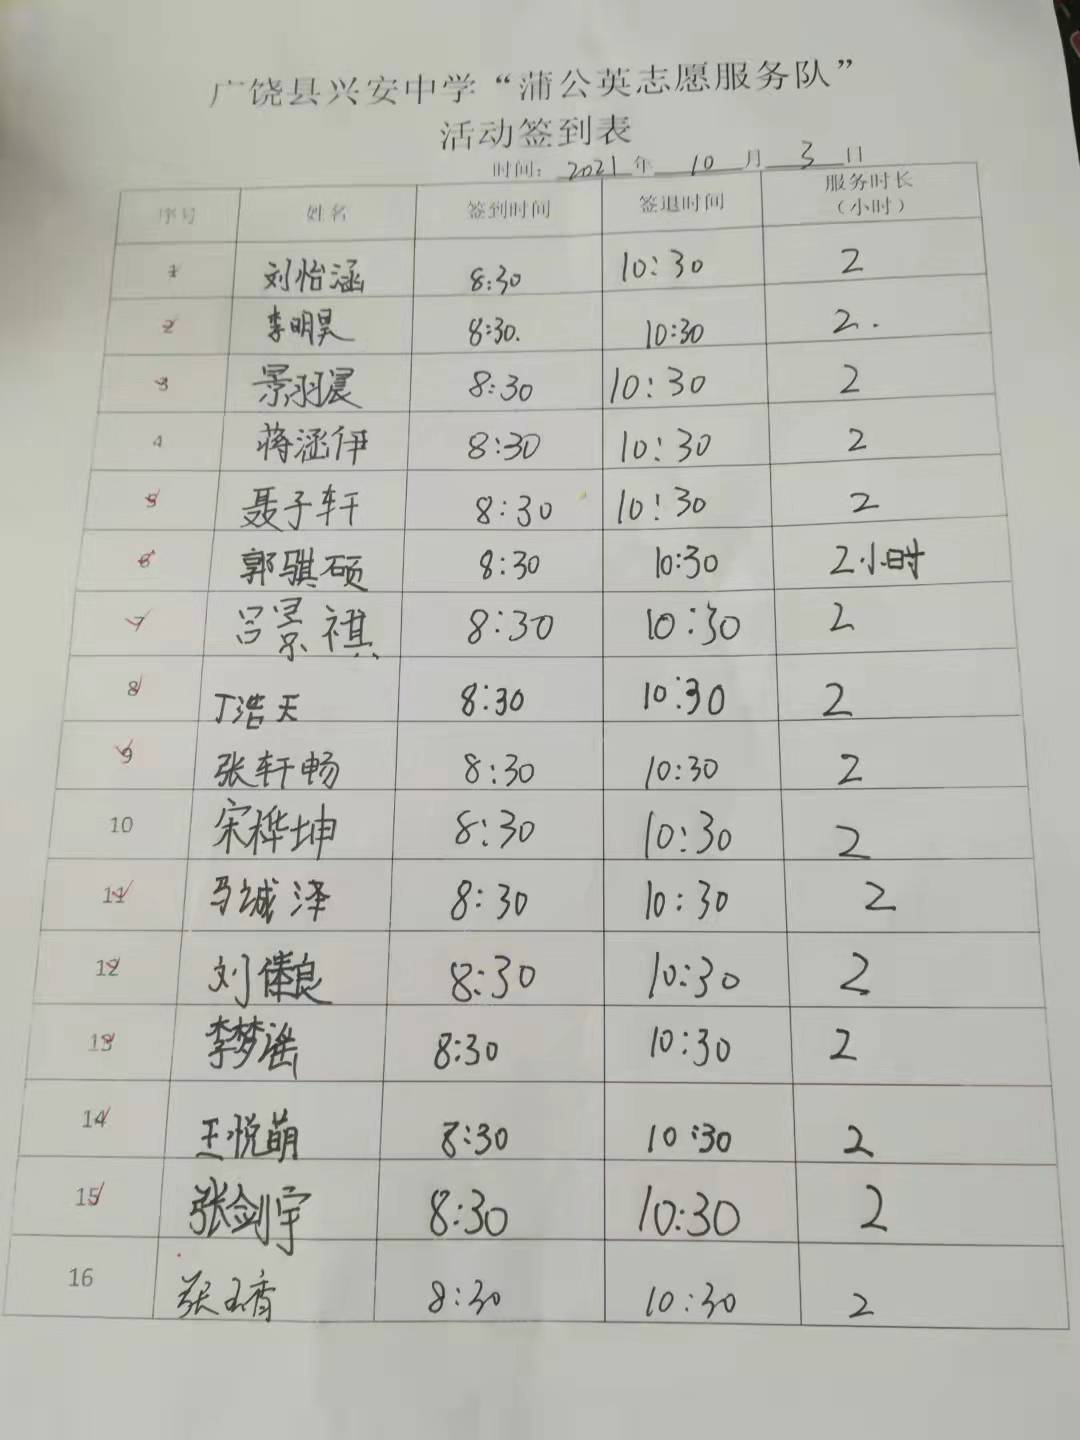 广饶县兴安中学“蒲公英志愿服务队”
活动签到表
时间：2021年 10 月 3 日
序号 姓名 签到时间 签退时间 服务时长（小时）
1 刘怡涵 8:30 10:30 2
2 李明昊 8:30. 10:30 2.
3 景羽晨 8:30 10:30 2
4 蒋涵伊 8:30 10:30 2
5 聂子轩 8:30 10:30 2
6 郭骐硕 8:30 10:30 2小时
7 吕景祺 8:30 10:30 2
8 丁浩天 8:30 10:30 2
9 张轩畅 8:30 10:30 2
10 宋桦坤 8:30 10:30 2
11 马诚泽 8:30 10:30 2
12 刘 良 8:30 10:30 2
13 李梦谣 8:30 10:30 2
14 王悦萌 8:30 10:30 2
15 张剑宇 8:30 10:30 2
16 张玉斉 8:30 10:30 2